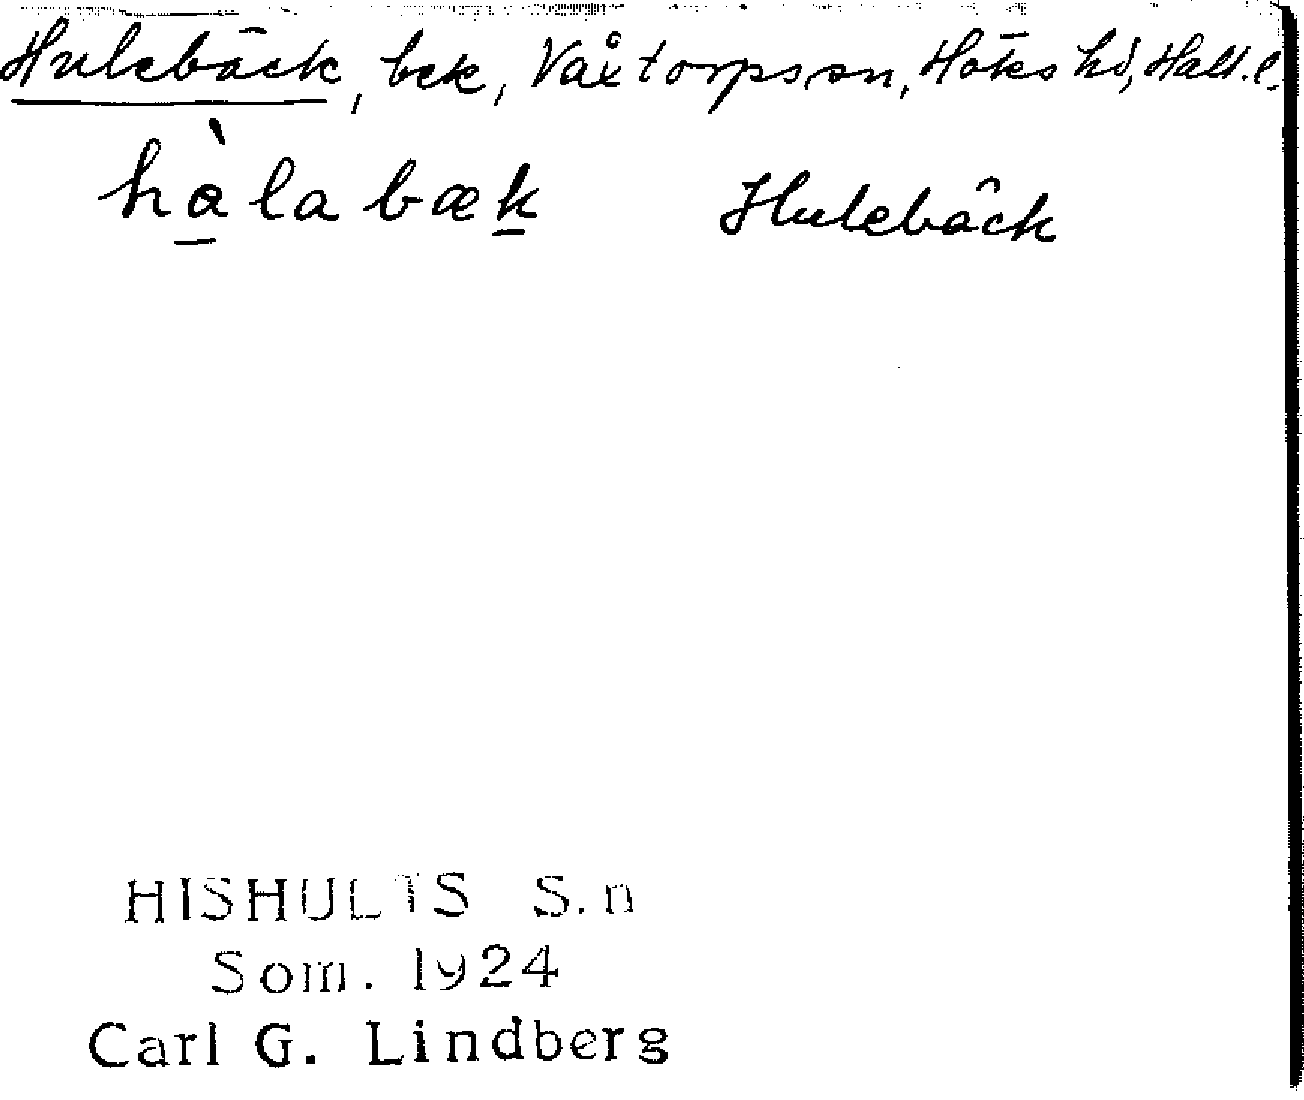 Hulebäck, bek, Våxtorps sn, Höks hd, Hall. l.
hàla bæk Hulebäck
HISHULTS S.n
Som. 1924
Carl G. Lindberg